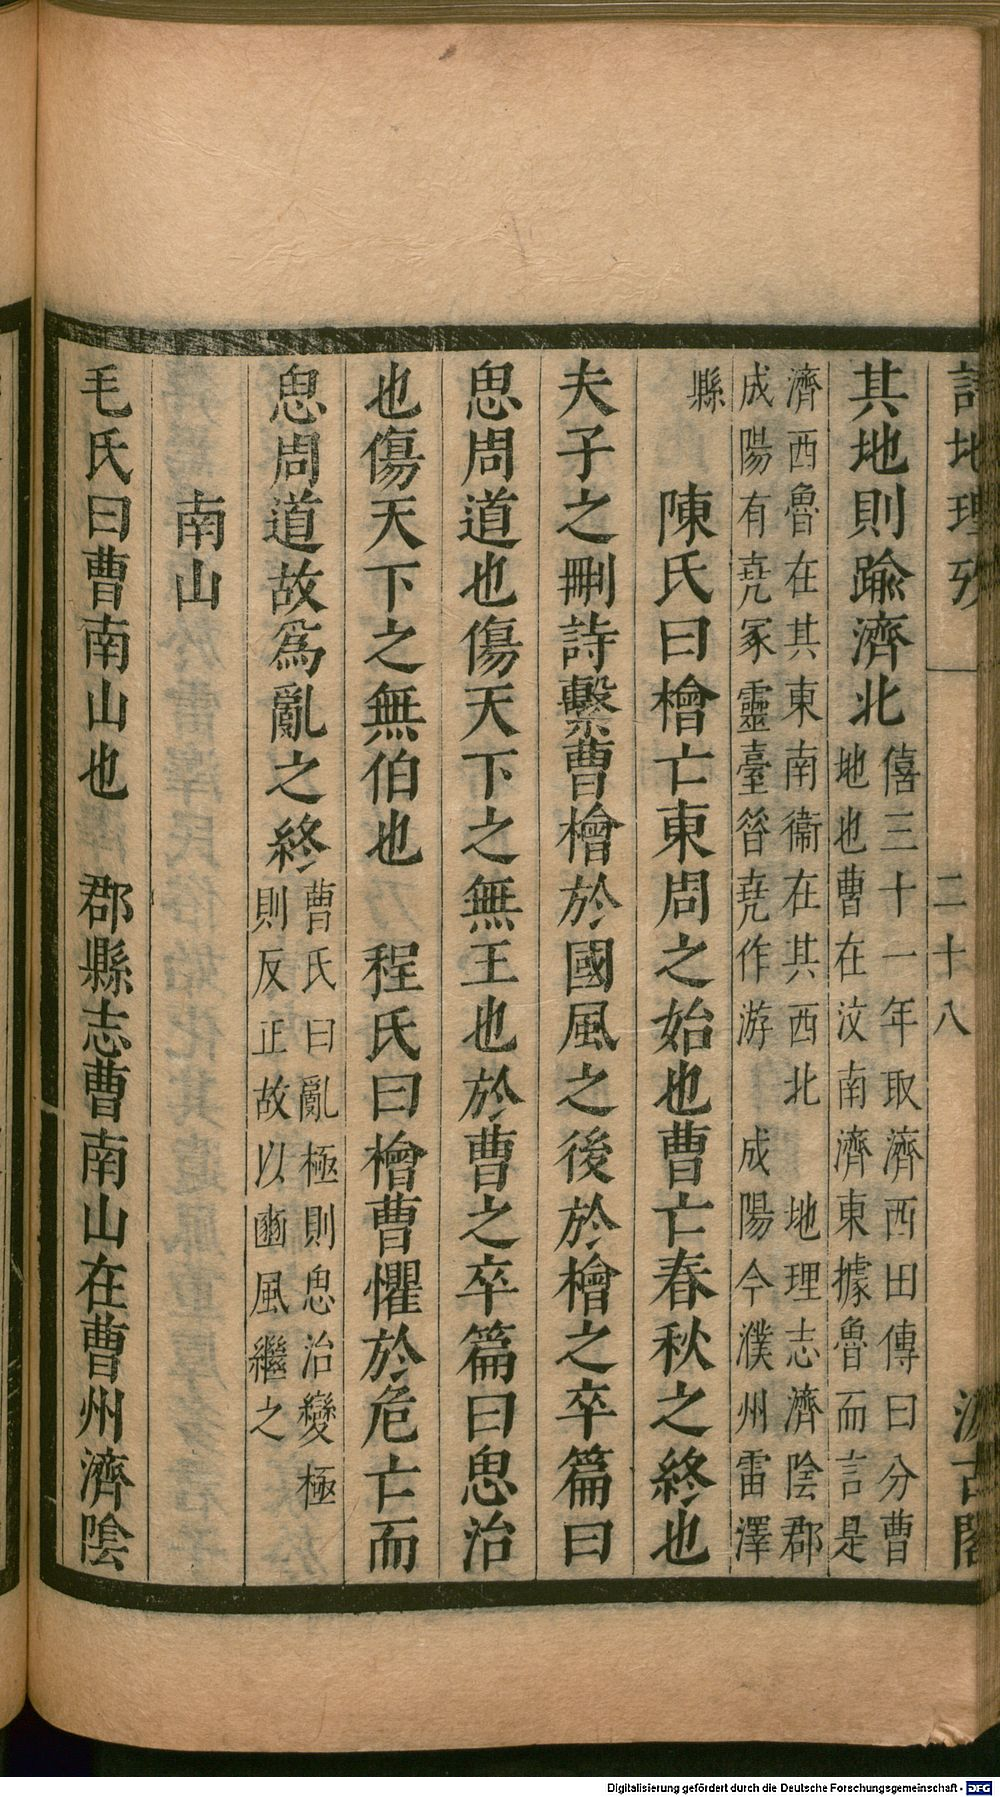 詩地理攷 二十八 汲古閣
其地則踰濟北
僖三十一年取濟西田傳曰分曹
地也曹在汶南濟東據魯而言是
濟西魯在其東南衞在其西北 地理志濟陰郡
成陽有堯冢靈臺昝堯作游 成陽今濮州雷澤
縣 陳氏曰檜亡東周之始也曹亡春秋之終也
夫子之刪詩繫曹檜於國風之後於檜之卒篇曰
思周道也傷天下之無王也於曹之卒篇曰思治
也傷天下之無伯也 程氏曰檜曹懼於危亡而
思周道故爲亂之終
曹氏曰亂極則思治變極
則反正故以豳風繼之
南山
毛氏曰曹南山也 郡縣志曹南山在曹州濟陰
Digitalisierung gefördert durch die Deutsche Forschungsgemeinschaft - DFG